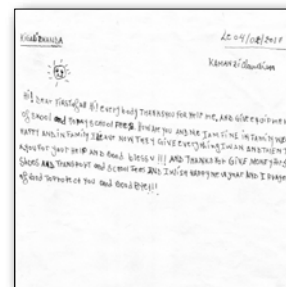 KHABIRHANGA
Le 04/02/2010
KAMANZI
Hi! Dear First of all Hi! everybody THANKYOU FOR Help me, AND GIVE equipment
OF SHOOL and Pupay SCHOOL FEES. HOW ARE YOU AND ME I AM FINE IN FAMILY WE
HAPPY AND IN FAMILY NOW THEY GIVE everything I WAN AND THEM
FOR YOUR HELP AND Good blessu!!! AND THANKS FOR GIVE MONEY
SHOES AND TRANSPORT and School Fees AND I wish HAPPY new year AND I pray
of Good To Protect you and Good Bye!!!